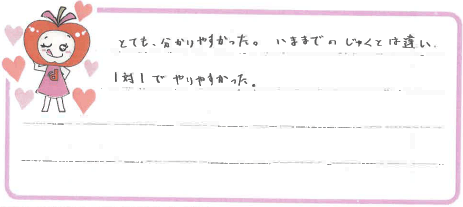 とても、分かりやすかった。 いままでの じゅくとは違い、
1対1で やりやすかった。